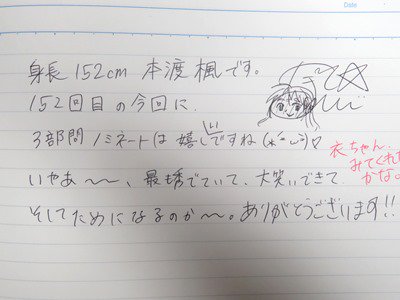 Date
身長152cm 本渡楓です。
152回目の今回に
3部問ノミネートは嬉しいですね(*´︶`*)♡
衣ちゃん、
みてくれた
かな。
いやあ〜〜、でていて、大笑いできて
そしてためになるのか〜。ありがとうございます!!